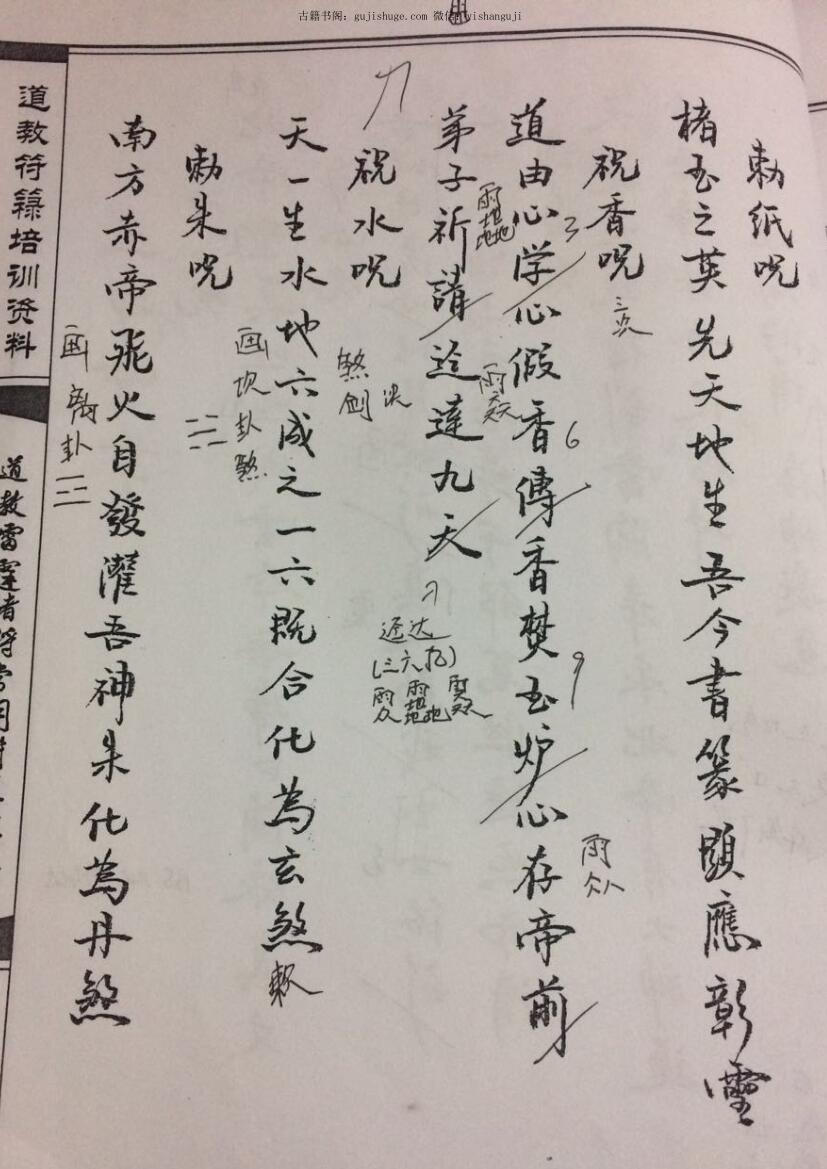 古籍书阁：gujishuge.com 微信：yishanguji
勅纸咒
楮玉之英先天地生吾今書篆顕應彰靈
祝香咒
三次
道由心学心假香傳香焚玉炉心存帝前
3
6
9
弟子祈請迳達九天
通达
祝水咒
煞剑决
天一生水地六成之一六既合化為玄煞
画坎卦煞
勅朱咒
南方赤帝飛火自發灌吾神朱化為丹煞
画离卦
道教符箓培训资料